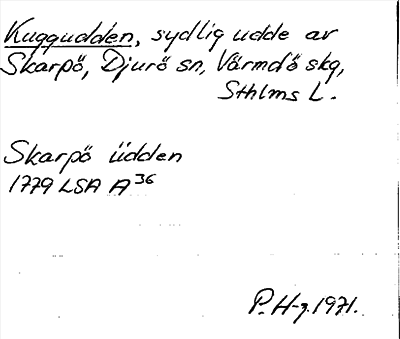 Kuggudden, sydlig udde av
Skarpö, Djurö sn, Värmdö skg,
Sthlms L.
Skarpö üdden
1779 LSA A36
P. H-g. 1971.